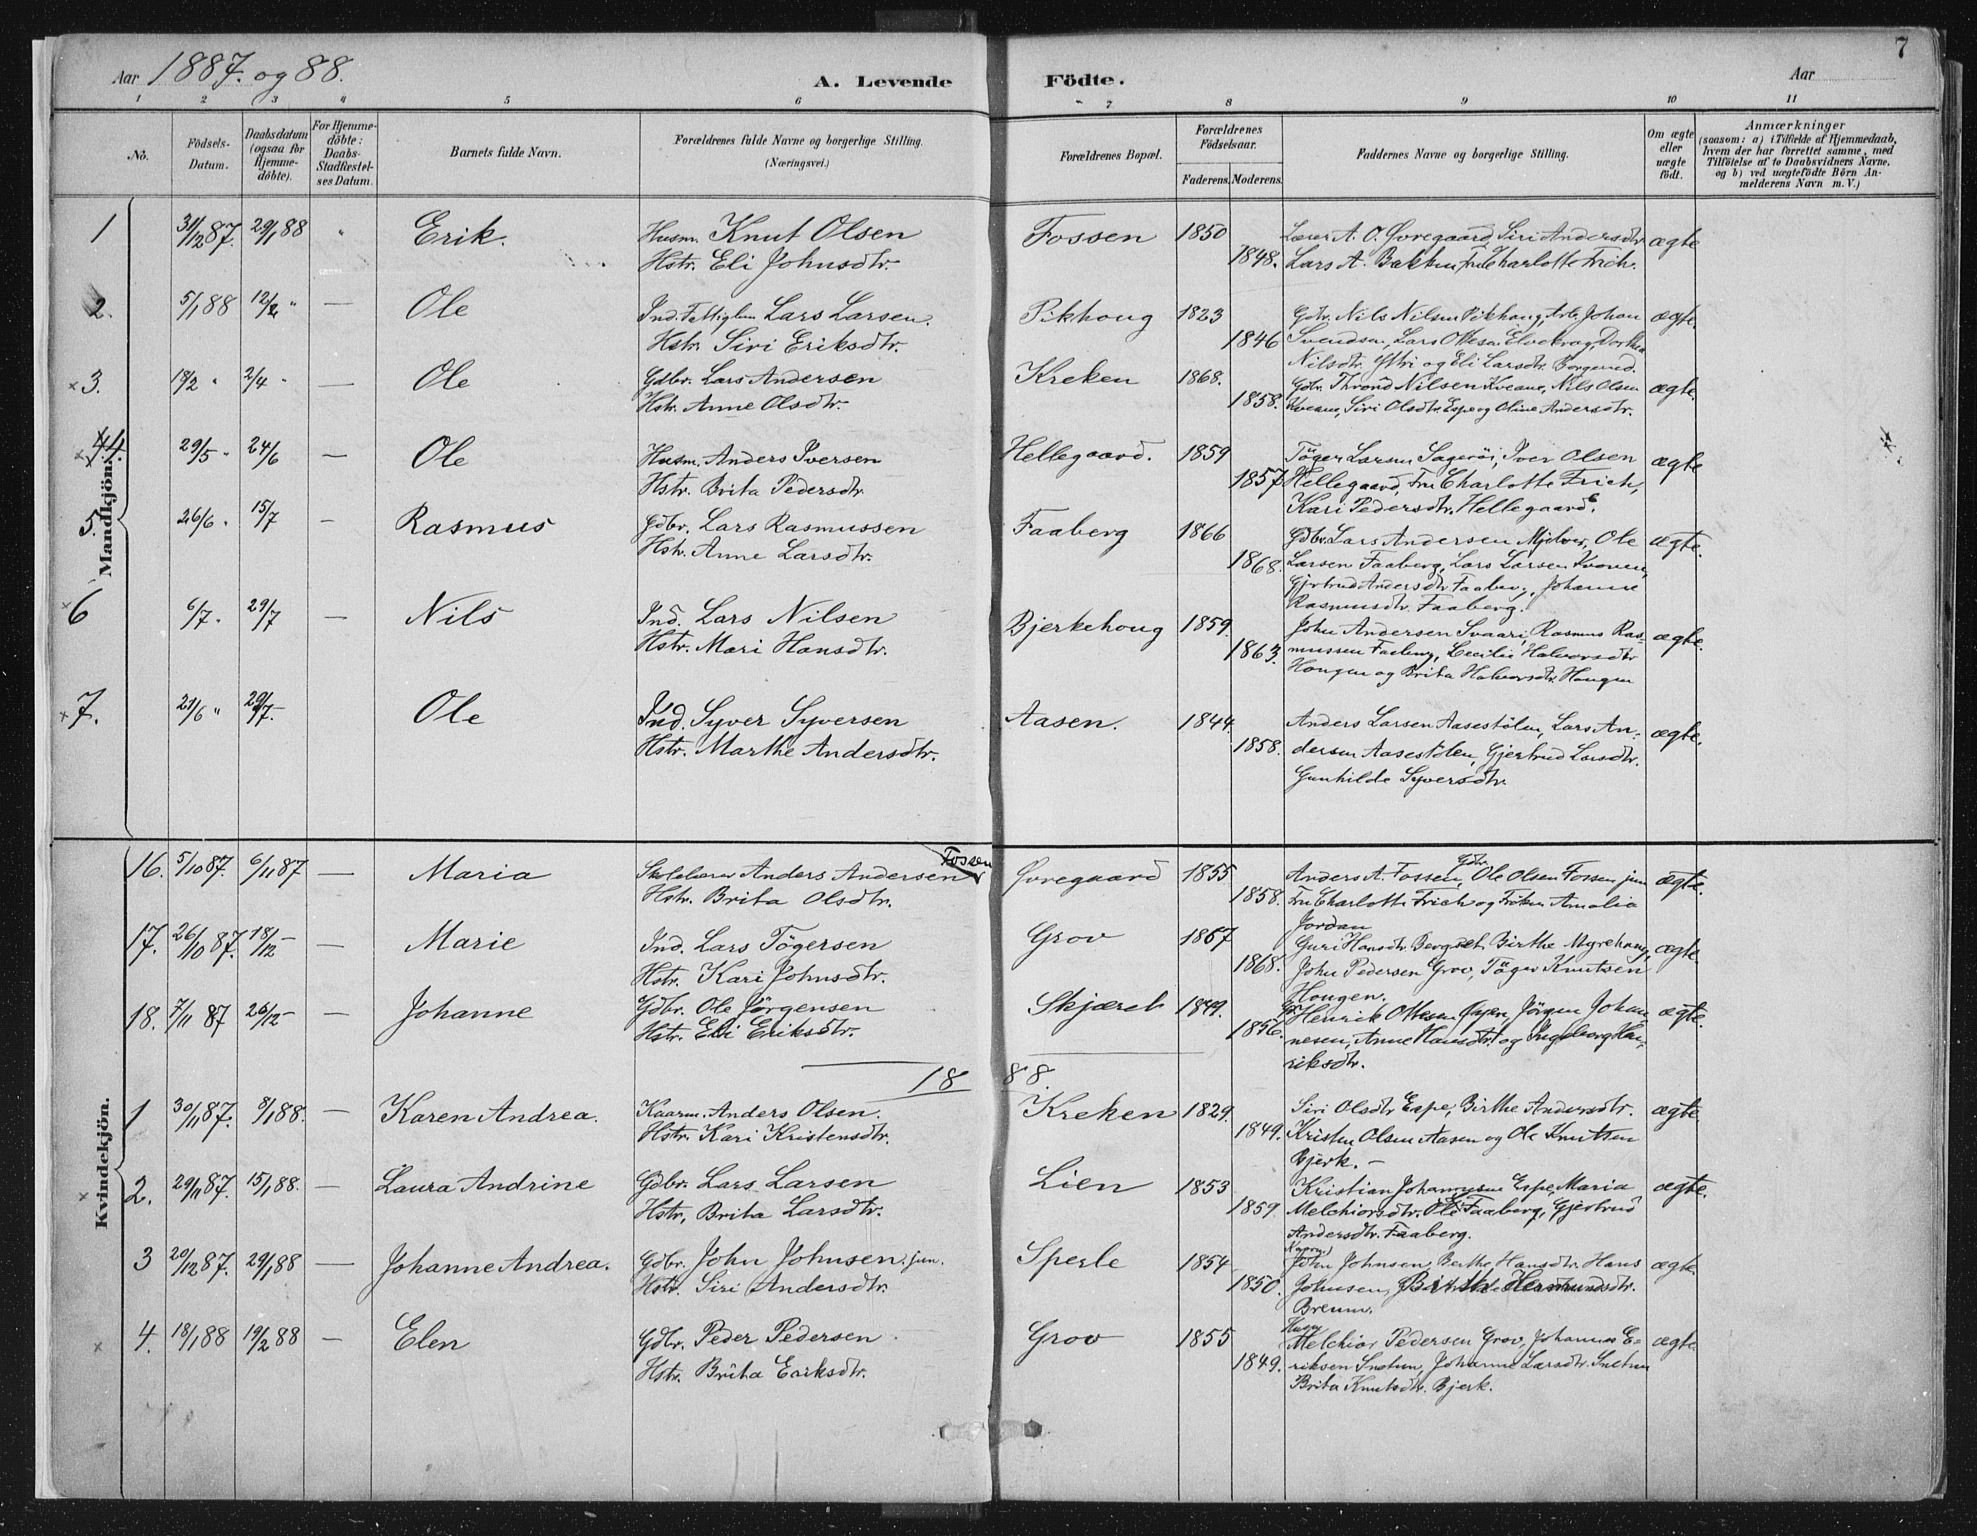 7
Aar 1887. og 88. A. Levende Födte. Aar
1 2 3 4 5 6 7 8 9 10 11
No. Födsels-Datum. Daabsdatum (ogsaa for Hjemme-döbte). For Hjemme-döbte: Daabs-Stadfæstel-ses Datum. Barnets fulde Navn. Forældrenes fulde Navne og borgerlige Stilling. (Næringsvei.) Forældrenes Bopæl. Forældrenes Födselsaar. Faderens. Moderens. Faddernes Navne og borgerlige Stilling. Om ægte eller uægte födt. Anmærkninger (saasom: a) i Tilfælde af Hjemmedaab, hvem der har forrettet samme, med Tilföielse af to Daabsvidners Navne. og b) ved uægtefödte Börn An-melderens Navn m. V.)
Mandkjön.
1 31/12 87. 29/1 88 " Erik. Husm. Knut Olsen Fossen 1850 Lærer A. O. Øvregaard, Siri Andersdtr ægte
Hstr. Eli Johnsdtr. 1848. Lars A. Bakken, Fru Charlotte Frich.
2. 5/1 88 12/2 " — Ole Ind. Fattiglem Lars Larsen. Pikhoug 1823 Gdbr. Nils Nilsen Pikhoug, Arb. Johan ægte.
Hstr. Siri Eriksdtr. 1846 Svendsen, Lars Ottesen Elvekrag, Dorthea
Nilsdtr. Ytri og Eli Larsdtr. Borgund.
3. 18/2 " 2/4 " — Ole Gdbr. Lars Andersen Kreken 1868. Gdbr. Thrond Nilsen Kveane, Nils Olsen ægte.
Hstr. Anne Olsdtr. 1858. Kveane, Siri Olsdtr. Espe og Oline Andersdtr.
4. 29/5 " 24/6 — Ole Husm. Anders Iversen Hellegaard. 1859 Töger Larsen Sageröi, Iver Olsen ægte
Hstr. Brita Pedersdtr. 1857 Hellegaard, Fru Charlotte Frich,
Kari Pedersdtr. Hellegaard.
5. 26/6 " 15/7 — Rasmus Gdbr. Lars Rasmussen Faaberg 1866 Gdbr. Lars Andersen Mjelver, Ole ægte.
Hstr. Anne Larsdtr. 1868. Larsen Faaberg, Lars Larsen Kvonen,
Gjertrud Andersdtr. Faaberg, Johanne
Rasmusdtr. Faaberg.
6 6/7 " 29/7 — Nils Ind. Lars Nilsen Bjerkehoug 1859. John Andersen Svaari, Rasmus Ras- ægte.
Hstr. Mari Hansdtr. 1863. mussen Faaberg, Cecilie Halvorsdtr
Hougen og Brita Halvorsdtr. Hougen
7. 21/6 " 29/7. — Ole Ind. Syver Syversen Aasen. 1844. Anders Larsen Aasestölen, Lars An- ægte.
Hstr. Marthe Andersdtr. 1858. dersen Aasestölen, Gjertrud Larsdtr.
Gunhilde Syversdtr.
Kvindekjön.
16. 5/10 87. 6/11 87 — Maria Skolelærer Anders Andersen Fossen Øvregaard 1855 Anders A. Fossen, Gdbr. Ole Olsen Fossen jun ægte.
Hstr. Brita Olsdtr. 1858. Fru Charlotte Frich og Fröken Amalia
Jordan
17. 26/10 87. 18/12 — — Marie Ind. Lars Tögersen Grov 1867 Guri Hansdtr. Bergset, Birthe Myrehaug, ægte.
Hstr. Kari Johnsdtr. 1868. John Pedersen Grov, Töger Knutsen
Hougen.
18. 7/11 87 26/12 — — Johanne Gdbr. Ole Jörgensen Skjæret 1849. Henrik Ottesen, Jörgen Johan- ægte.
Hstr. Eli Eriksdtr. 1856. nesen, Anne Hansdtr. og Ingeborg Hen-
riksdtr.
18 88.
1 30/11 87. 8/1 88. — Karen Andrea. Kaarm. Anders Olsen. Kreken 1829. Siri Olsdtr Espe, Birthe Andersdtr. ægte
Hstr. Kari Kristensdtr. 1849. Kristen Olsen Aasen og Ole Knutsen
Bjerk. —
2. 29/11 87. 15/1 88. — Laura Andrine Gdbr. Lars Larsen Lien 1853 Kristian Johannesen Espe, Maria ægte.
Hstr. Brita Larsdtr. 1859. Melchiorsdtr. Ole Faaberg, Gjertrud
Andersdtr. Faaberg.
3 20/12 87. 29/1 88 — Johanne Andrea. Gdbr. John Johnsen jun. Sperle 1854 John Johnsen, Berthe Hansdtr. Hans ægte.
Hstr. Siri Andersdtr. 1850. Johnsen, Hermundsdtr.
Breum.
4. 18/1 88 19/2 88 — Elen Gdbr. Peder Pedersen Grov 1855 Husm Melchior Pedersen Grov, Johannes E- ægte.
Hstr. Brita Eriksdtr. 1849. riksen Snetun, Johanne Larsdtr. Snetun
Brita Knutsdtr. Bjerk.